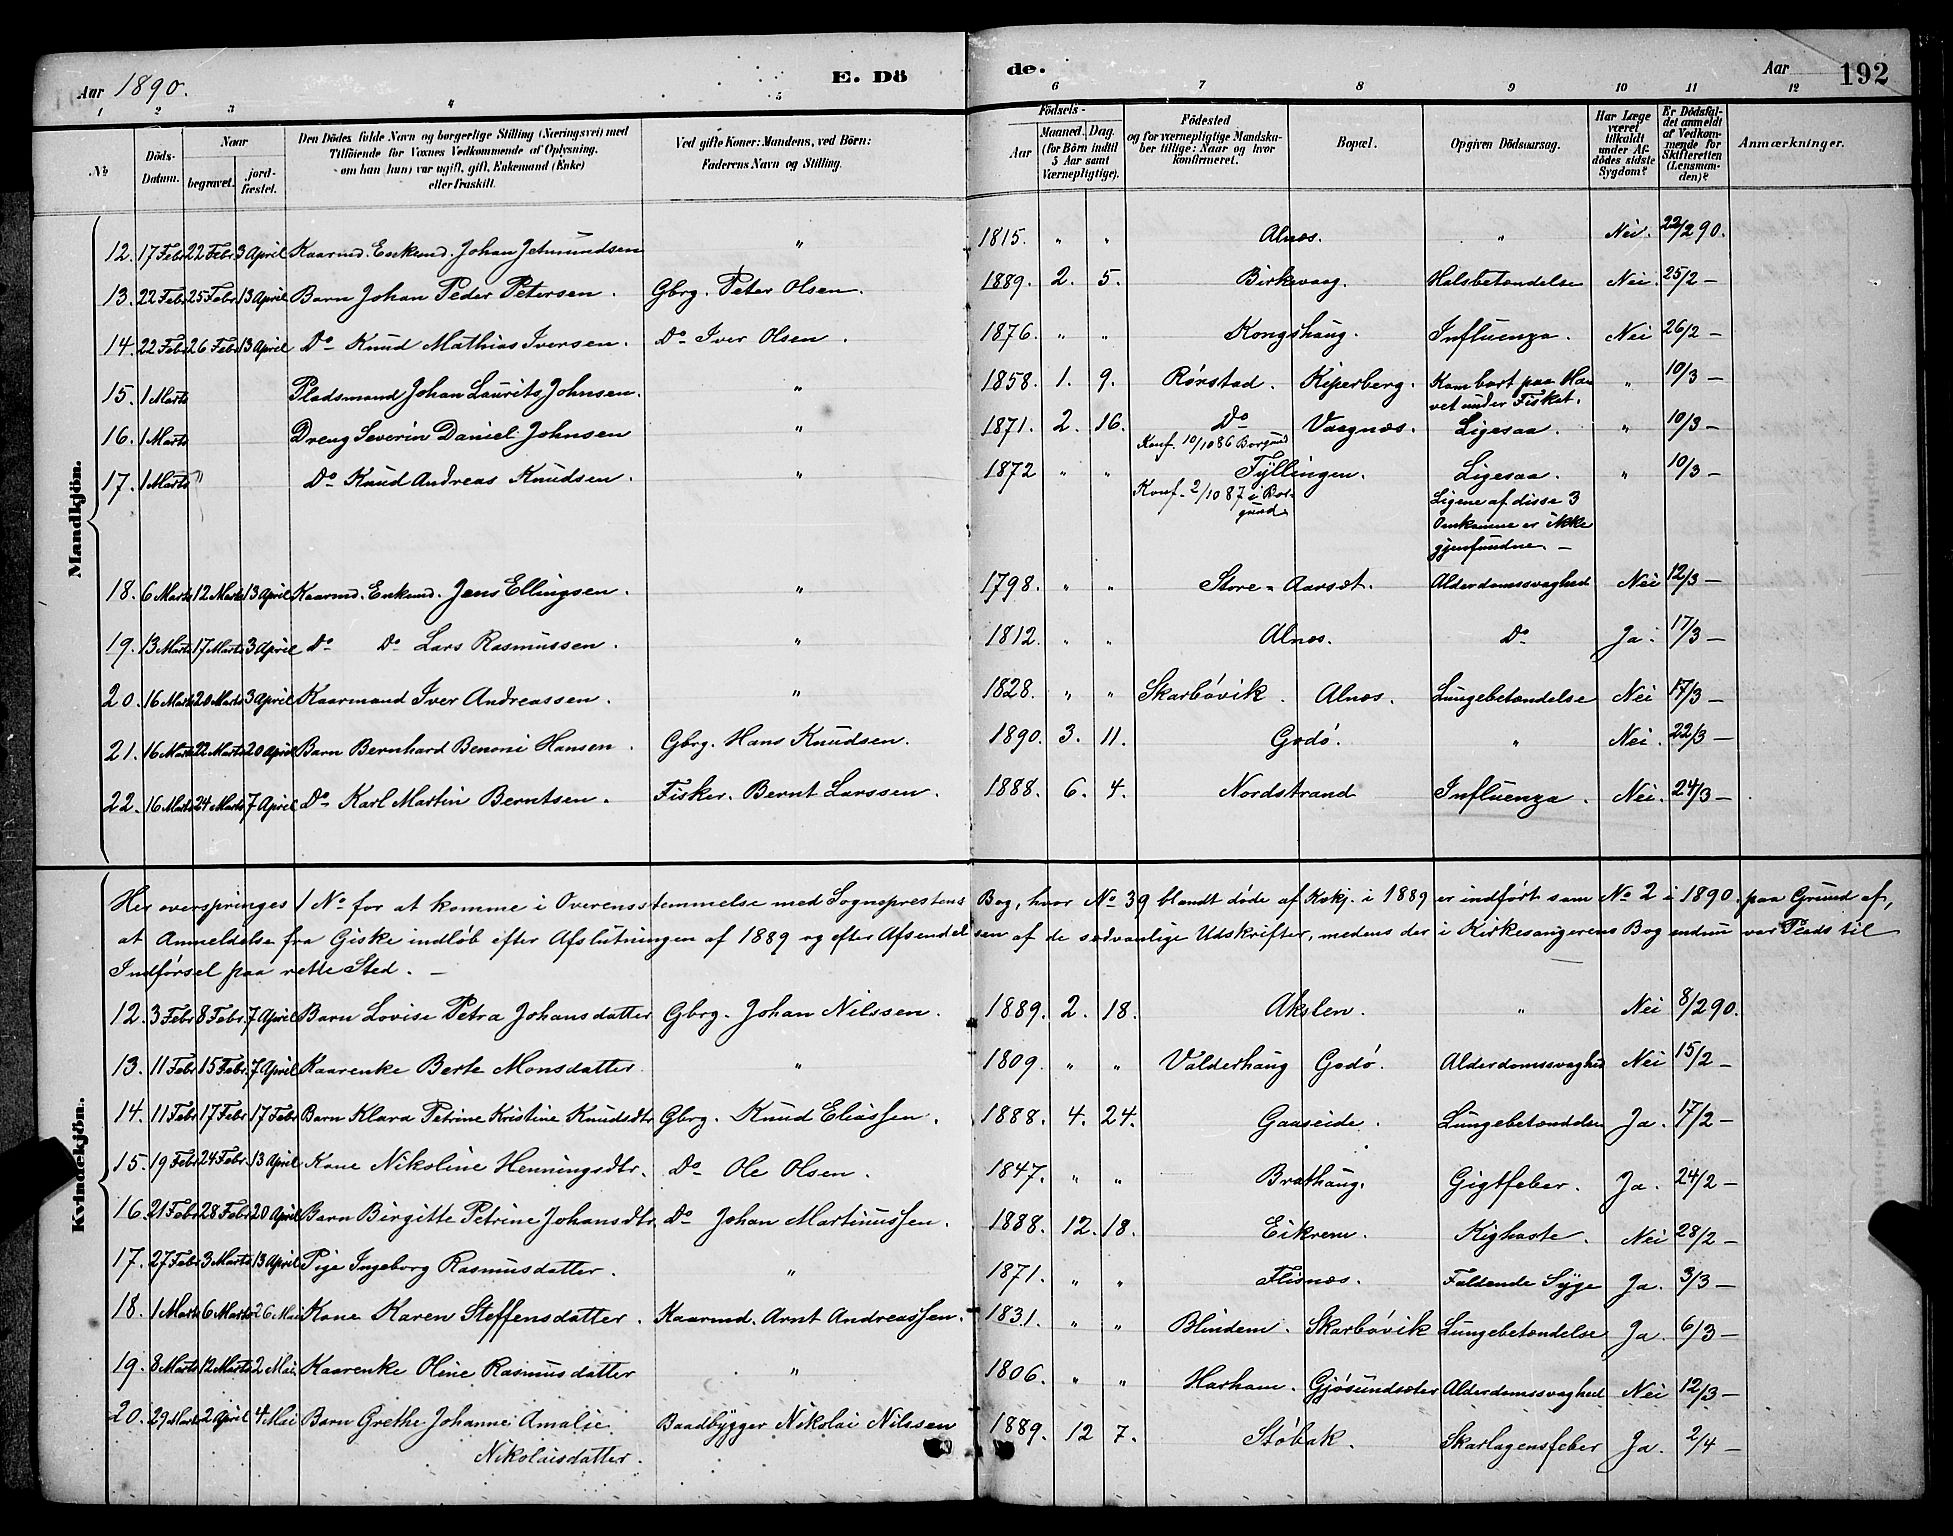 Aar 1890. E. Dö de. Aar 192
1 2 3 4 5 6 7 8 9 10 11 12
№ Döds-Datum. Naar begravet. jordfæstet. Den Dödes fulde Navn og borgerlige Stilling (Næringsvei) med Tilföiende for Voxnes Vedkommende af Oplysning, om han (hun) var ugift, gift, Enkemand (Enke) eller fraskilt. Ved gifte Koner: Mandens, ved Börn: Faderens Navn og Stilling. Födsels- Aar Maaned. Dag. (for Börn indtil 5 Aar samt Værnepligtige). Födested og for værnepligtige Mandskaber tillige: Naar og hvor konfirmeret. Bopæl. Opgiven Dödsaarsag. Har Læge været tilkaldt under Afdödes sidste Sygdom? Er Dödsfaldet anmeldt af Vedkommende for Skifteretten (Lensmanden)? Anmærkninger.
Mandkjön.
12. 17 Febr 22 Febr. 3 April Kaarmd. Enkemd. Johan Jetmundsen " 1815. " " Alnæs. " Nei. 22/2 90.
13. 22 Febr 25 Febr. 13 April Barn Johan Peder Petersen. Gbrg. Peter Olsen. 1889. 2. 5. Birkevaag. Halsbetændelse Nei. 25/2 —
14. 22 Febr 26 Febr 13 April Do Knud Mathias Iversen. Do Iver Olsen. 1876. " " Kongshaug. Influenza. Nei 26/2 —
15. 1 Marts Pladsmand Johan Laurits Johnsen. " 1858. 1. 9. Rørstad. Kiperberg. Kom bort paa Havet under Fisket. " 10/3 —
16. 1 Marts Dreng Severin Daniel Johnsen " 1871. 2. 16. Do Vaagnæs. Ligesaa. " 10/3 —
Konf. 10/10 86 Borgund
17. 1 Marts Do Knud Andreas Knudsen. " 1872 " " Tyllingen. Ligesaa. " 10/3 —
Konf. 2/10 87 i Borgund. Ligene af disse 3 Omkomne er ikke gjenfundne. —
18. 6 Marts 12 Marts 13 April Kaarmd. Enkemd. Jens Ellingsen. " 1798. " " Store-Aarsæt. Alderdomssvaghed Nei 12/3 —
19. 13 Marts 17 Marts 3 April Do Do Lars Rasmussen. " 1812. " " Alnæs. Do Ja. 17/3 —
20. 16 Marts 20 Marts 3 April Kaarmand Iver Andreassen. " 1828. " " Skarbøvik. Alnæs. Lungebetændelse Nei 17/3 —
21. 16 Marts 22 Marts 20 April Barn Bernhard Benoni Hansen. Gbrg. Hans Knudsen. 1890. 3. 11. Godø. " Nei. 22/3 —
22. 16 Marts 24 Marts 7 April Do Karl Martin Berntsen. Fisker. Bernt Larssen. 1888. 6. 4. Nordstrand Influenza. Nei. 24/3 —
Kvindekjön.
Her overspringes 1 No for at komme i Overensstemmelse med Sogneprestens Bog, hvor No 39 blandt døde af Kvkj. i 1889 er indført som No 2 i 1890 paa Grund af,
at Anmeldelse fra Giske indløb efter Afslutningen af 1889 og efter Afsendelsen af de sædvanlige Udskrifter, medens der i Kirkesangerens Bog endnu var Plads til
Indførsel paa rette Sted. —
12. 3 Febr 8 Febr. 7 April Barn Lovise Petra Johansdatter Gbrg. Johan Nilssen. 1889. 2. 18. Akslen. " Nei 8/2 90.
13. 11 Febr 15 Febr. 7 April Kaarenke Berte Monsdatter " 1809. " " Valderhaug Godø. Alderdomssvaghed Nei 15/2 —
14. 11 Febr 17 Febr 17 Febr Barn Klara Petrine Kristine Knudsdtr Gbrg. Knud Eliassen. 1888. 4. 24. Gaaseide. Lungebetændelse Ja. 17/2 —
15. 19 Febr 24 Febr. 13 April Kone Nikoline Henningsdtr. Do Ole Olsen. 1847. " " Brathaug. Gigtfeber. Ja. 24/2 —
16. 21 Febr 28 Febr 20 April Barn Birgitte Petrine Johansdtr. Do Johan Martinussen. 1888. 12. 18. Eikrem. Kighoste. Nei 28/2 —
17. 27 Febr 3 Marts 13 April Pige Ingeborg Rasmusdatter. " 1871. " " Flisnæs. Faldende Syge Ja. 3/3 —
18. 1 Marts 6 Marts 26 Mai Kone Karen Steffensdatter. Kaarmd. Arnt Andreassen. 1831. " " Blindem. Skarbøvik Lungebetændelse Ja. 6/3 —
19. 8 Marts 12 Marts 2 Mai Kaarenke Oline Rasmusdatter " 1806. " " Harham. Gjøsundsæter Alderdomssvaghed Nei 12/3 —
20. 29 Marts 2 April 4 Mai Barn Grethe Johanne Amalie Baadbygger Nikolai Nilssen 1889. 12 7. Støbak. Skarlagensfeber Ja. 2/4 —
Nikolaisdatter.